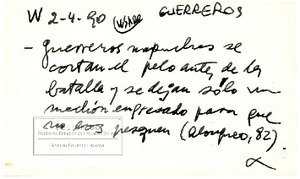 W 2-4-90 GUERREROS
- guerreros mapuches se
cortan el pelo antes de la
batalla y se dejan sólo un
mechón engrasado para que
no los pesquen (Alonqueo, 82).